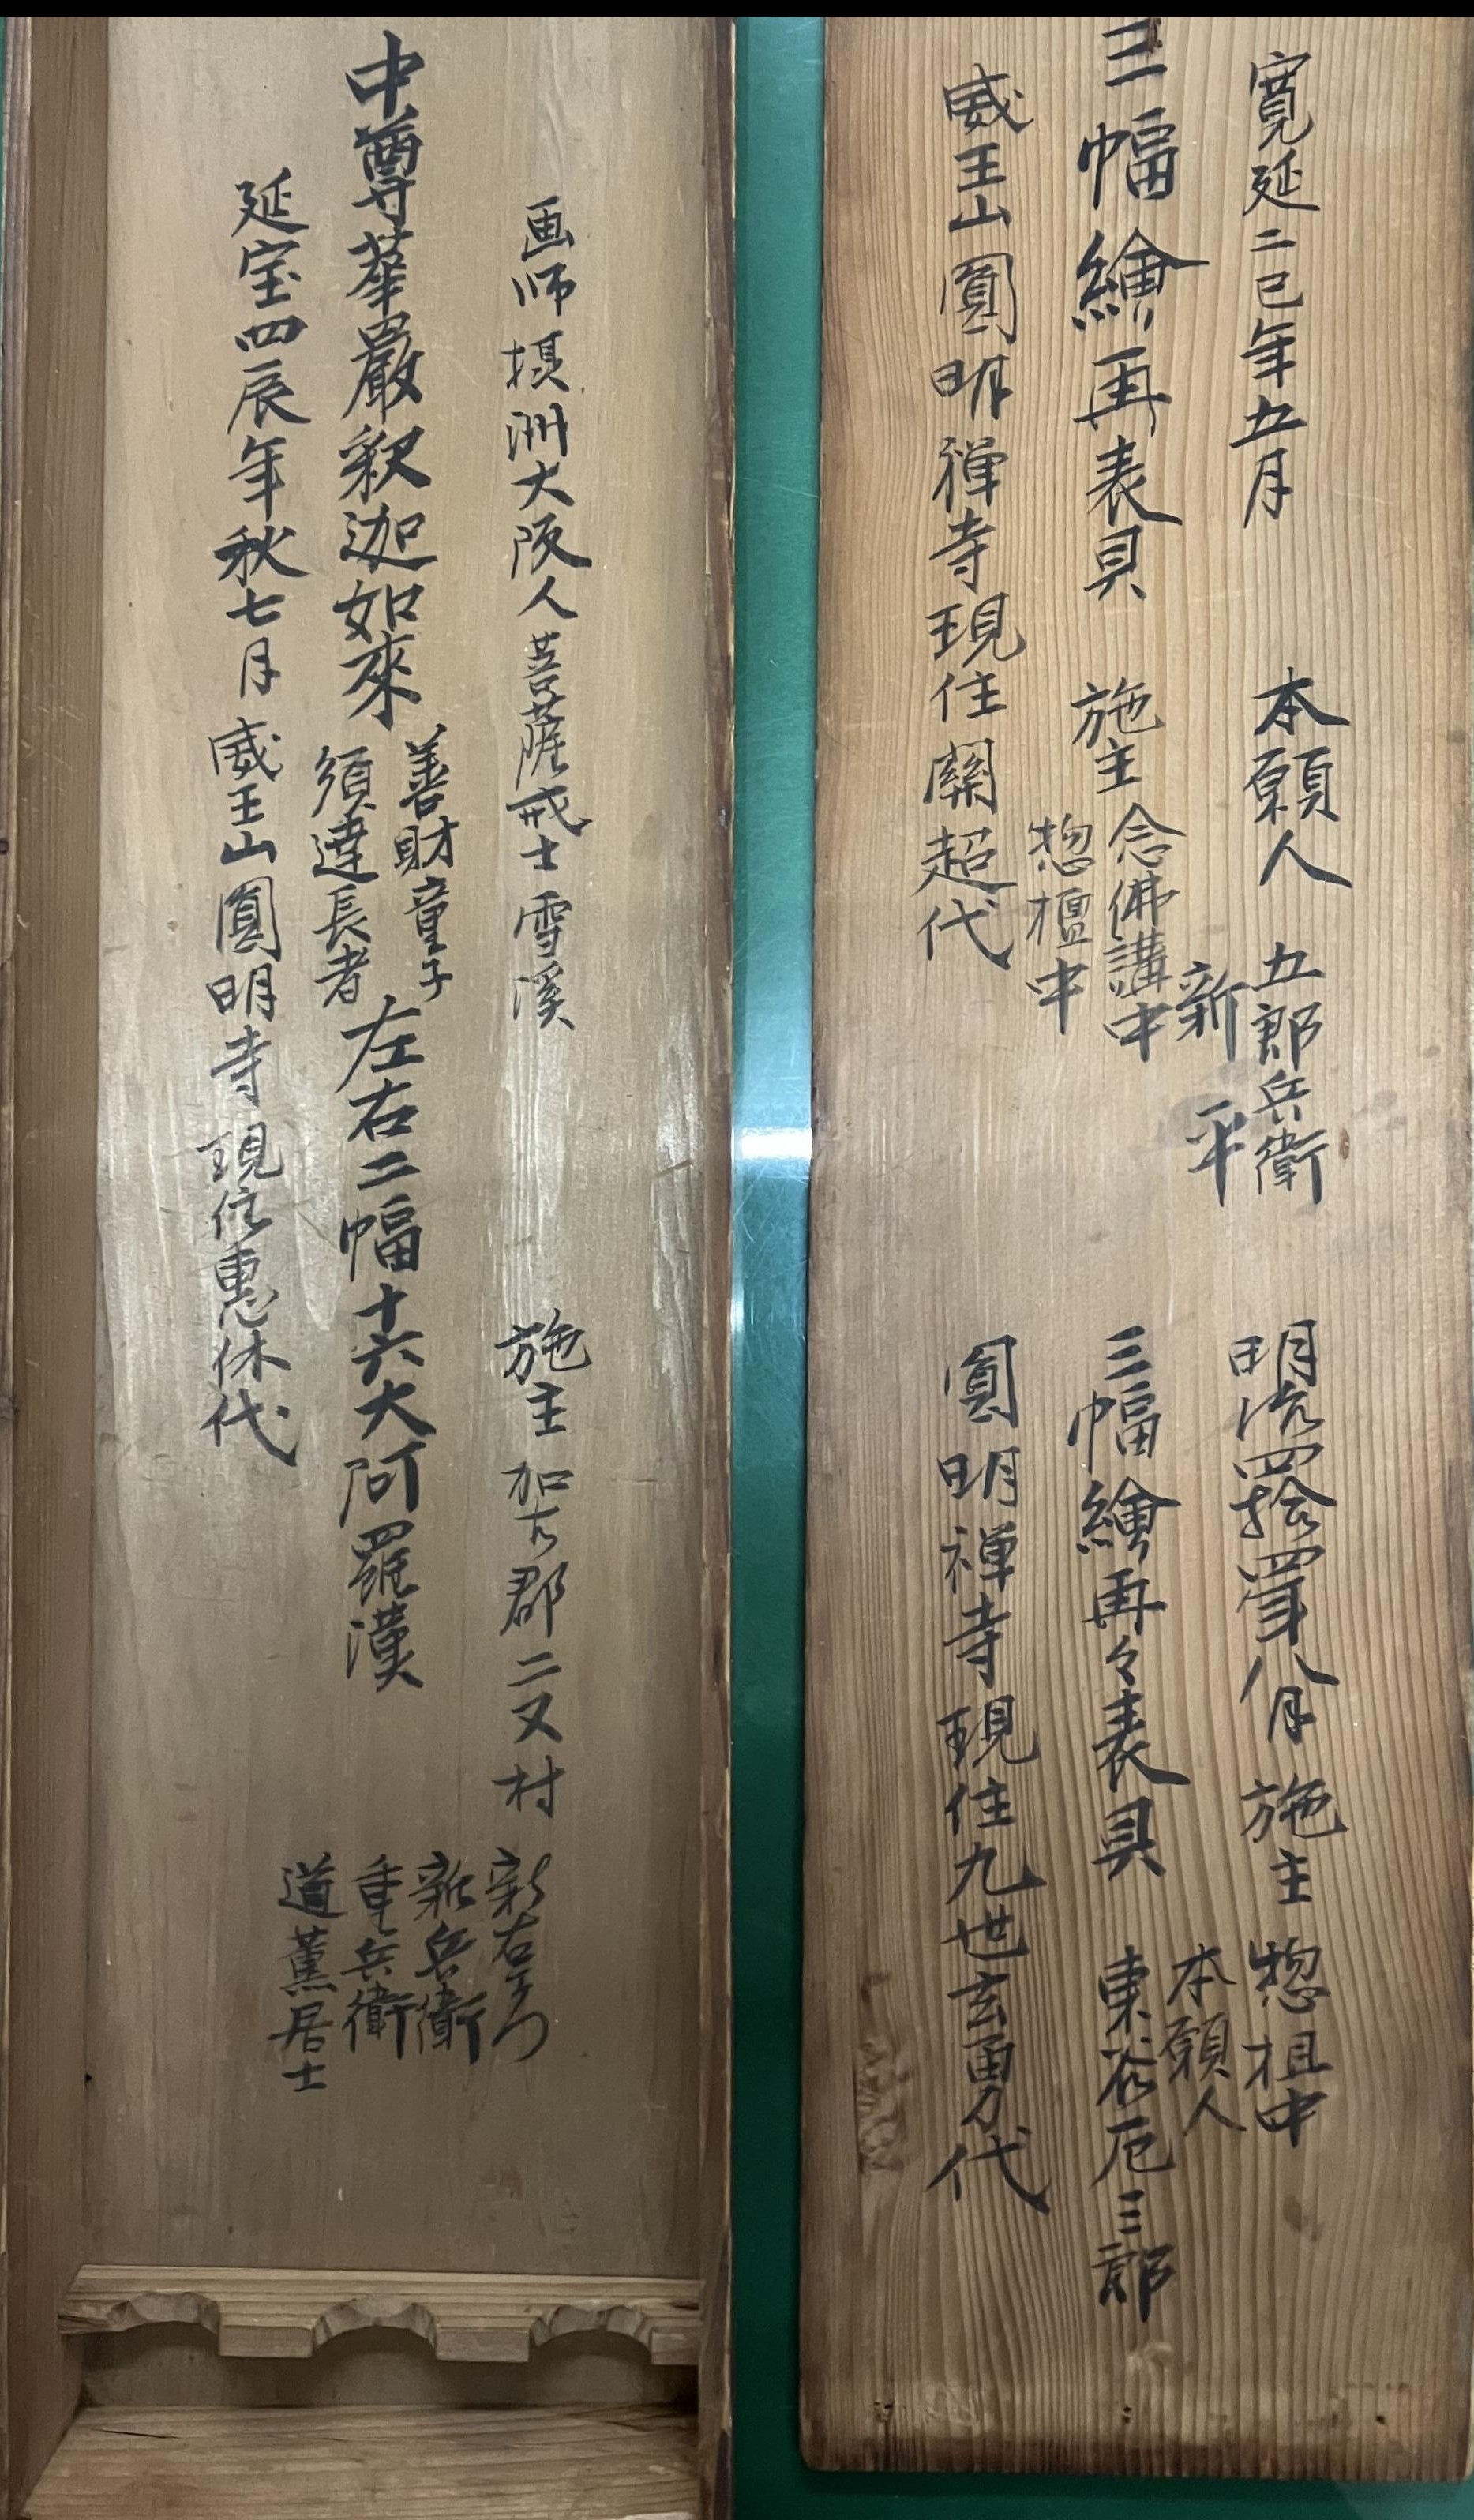 寛延二巳年五月　本願人　五郎兵衛
新平
三幅繪再表具　施主　念佛講中
惣檀中
威王山圓明禅寺現住關超代
明治四拾四年八月　施主　惣祖中
本願人
三幅繪再々表具　東　厄三郎
圓明禅寺現住九世玄勇代
画师摂洲大阪人菩薩戒士雪溪　施主　加古郡二又村　新右衛門
新兵衛
重兵衛
道薫居士
中尊華嚴釈迦如來　善財童子
須達長者
左右二幅十六大阿羅漢
延宝四辰年秋七月威王山圓明寺現住惠休代